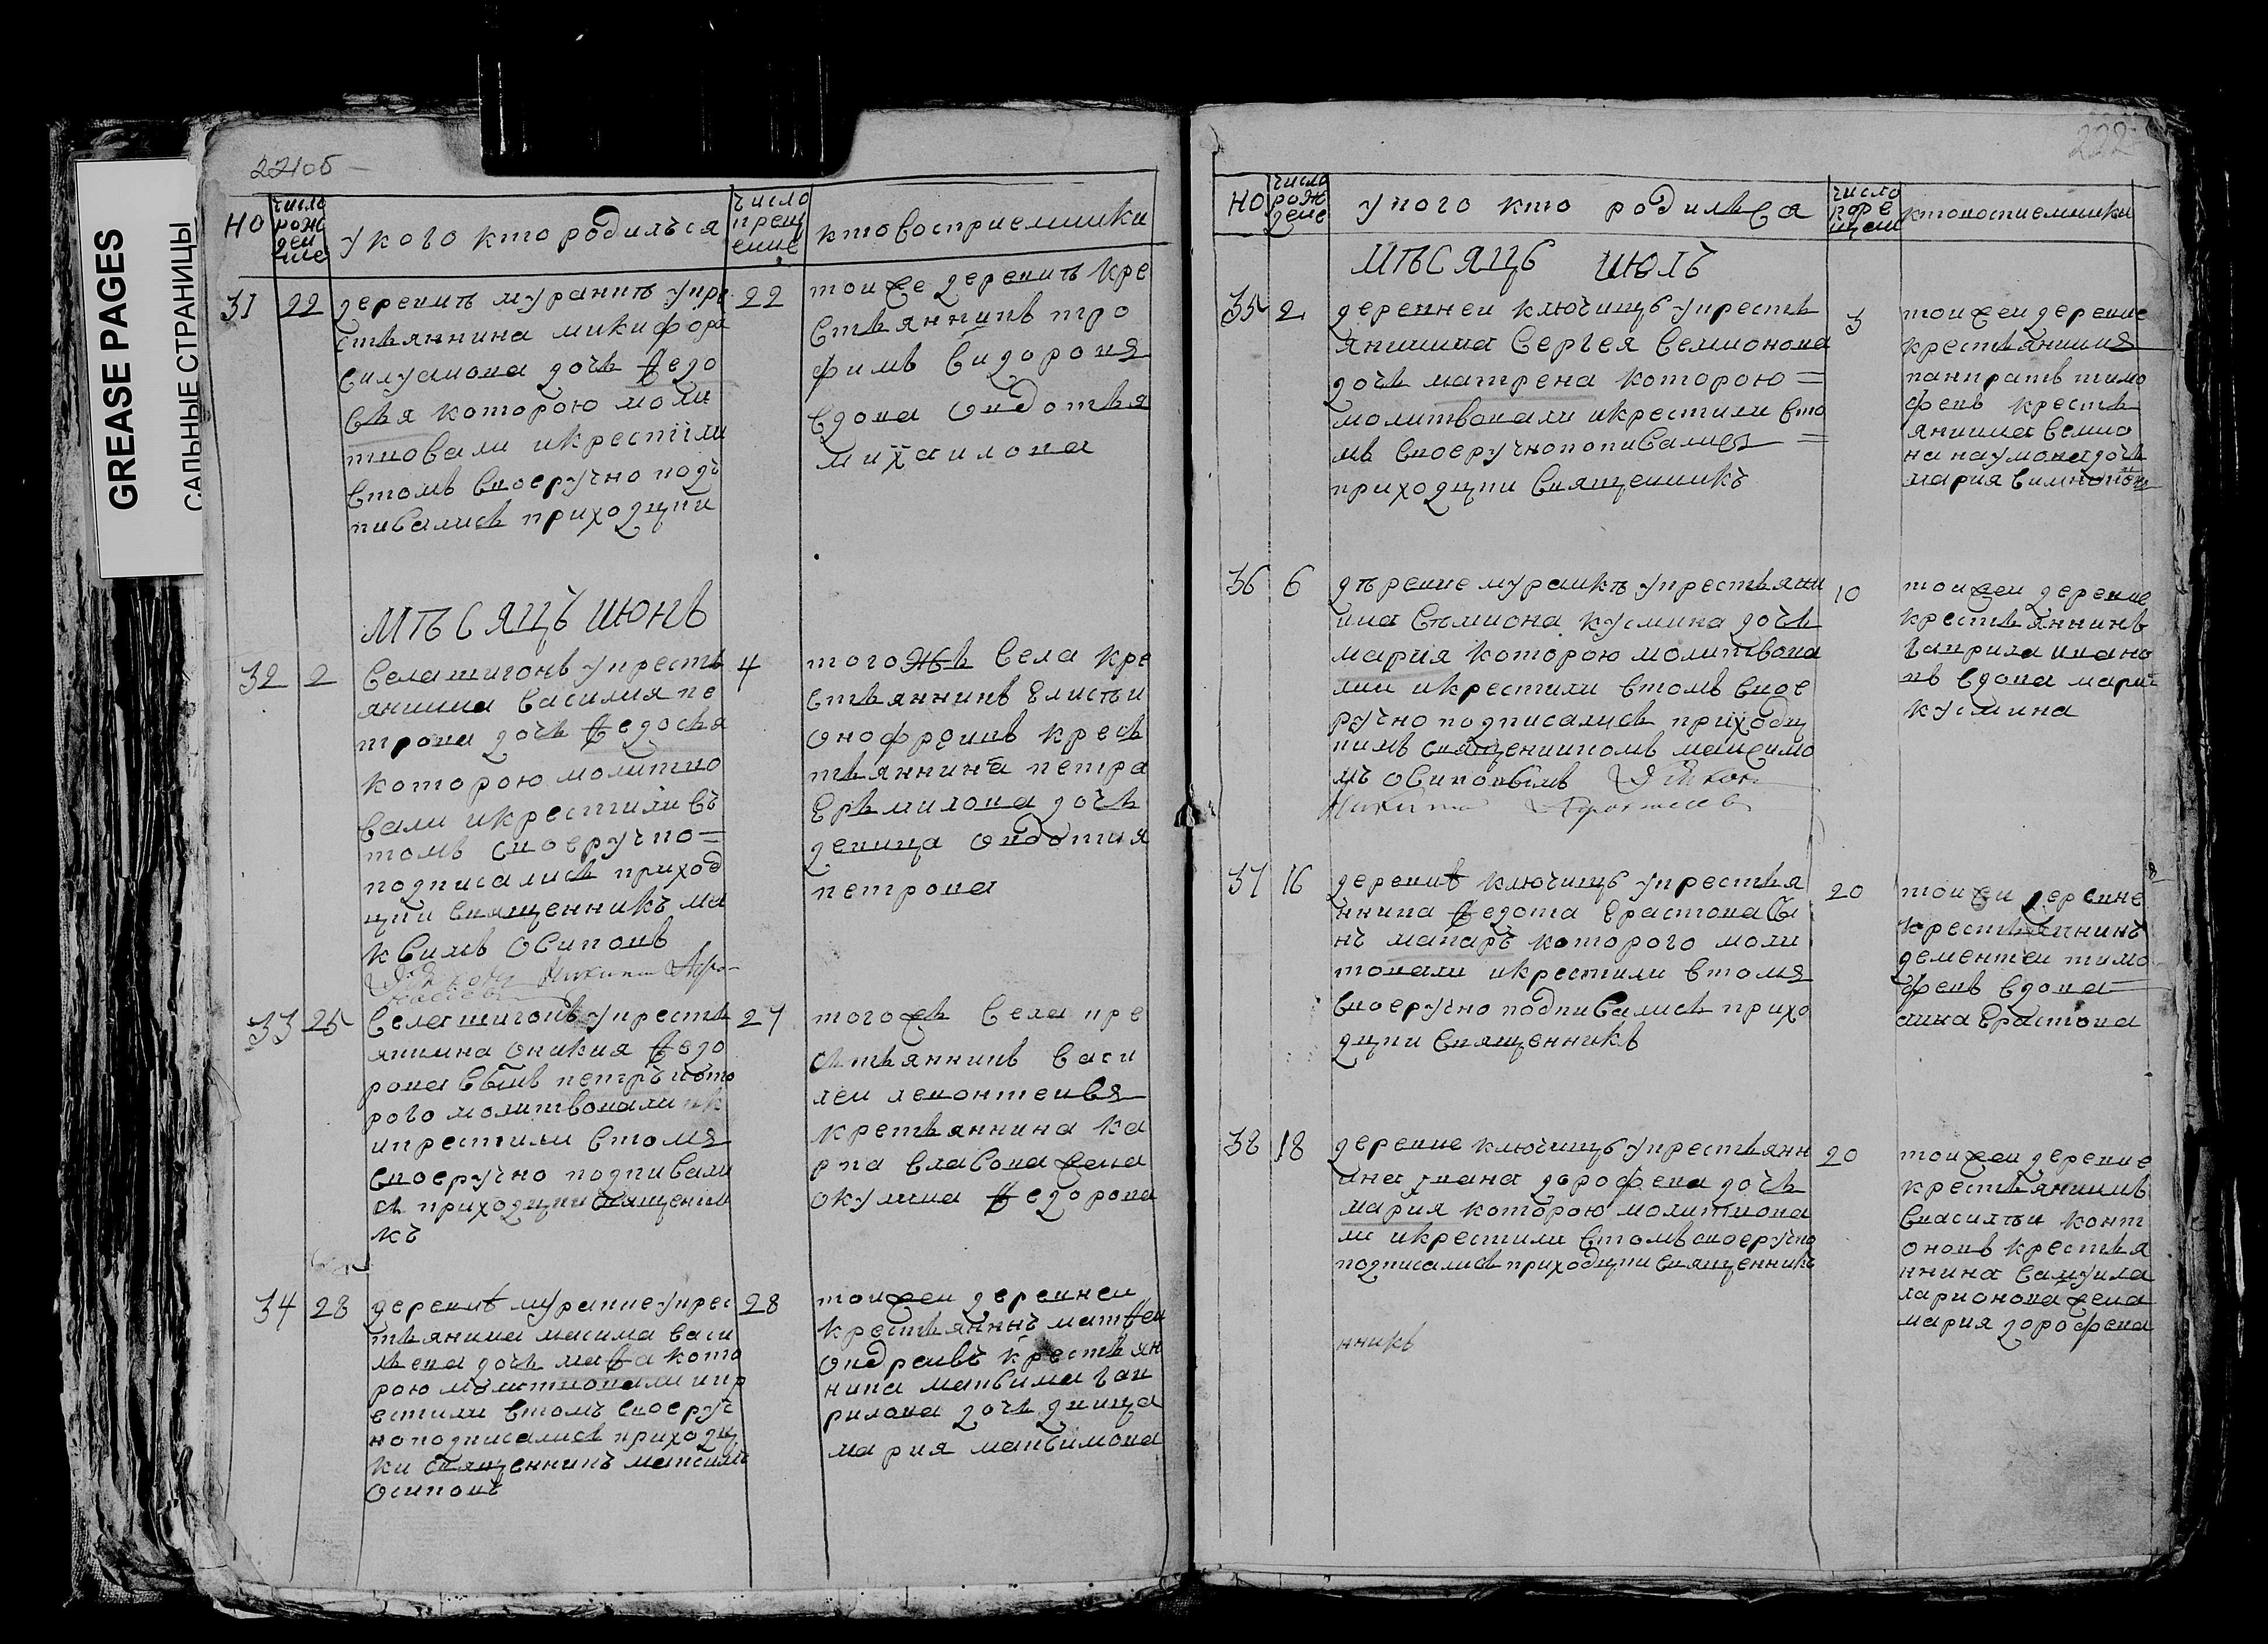 GREASE PAGES
САЛЬНЫЕ СТРАНИЦЫ
221об
НО
число рождение
у кого кто родилъся
число крещение
кто восприемники
31 22 деревнѣ муравнѣ укре 22
стьяннина микифора
силуанова дочь ѳедо
сья которою моли
твовали икрестили
втомъ своеручно подъ
писались приходцки
тоиже деревнѣ кре
стьяннинъ тро
фимъ сидоровъ
вдова овдотья
михаилова
мѣсяцъ июнь
32 2 села шигонъ укресть 4
яннина василия пе
трова дочь ѳедосья
которою молитво
вали икрестили въ
томъ своеручно =
подписались приход
цки священникъ ма
ксимъ осиповъ
Дьякон Никита Афо-
насиевъ
тогожъ села кре
стьяннинъ елистьи
оноѳреивъ кресь
тьяннина петра
ермилова дочь
девица овдотия
петрова
33 25 села шигонъ укресть 27
яннина оникия ѳедо
рова сынъ петръ кото
рого молитвовали
икрестили втомъ
своеручно подписали
сь приходцки священни
къ
тогожъ села кре
стьяннинъ васи
леи левонтеивъ
кретьяннина ка
рпа власова жена
окулина ѳедорова
34 28 деревнѣ муравке укрес 28
тьянина масима васи
льева дочь маѳа кото
рою молитвовали икр
естили втомъ своеруч
но подписались приходц
ки священникъ максимъ
осиповъ
тоижеи деревнеи
крестьяннъ матѳеи
ондреивъ крестьян
нина максима гав
рилова дочь двица
мария максимова
222
НО
число рождене
у кого кто родилься
число крещени
кто востиемники
мѣсяцъ июлъ
35 2 деревнеи ключищъ укресть 3
яннина сергея семионова
дочь матрена которою =
молитвовали икрестили вто
мъ своеручнопописались =
приходцки священникъ
тоижеи деревне
крестьянинъ
панкратъ тимо
феивъ кресть
янина семио
на наумова дочь
мария симионова
36 6 дѣревне муравкѣ укрестьяни 10
ина сѣмиона кусмина дочь
мария которою молитвова
лии икрестили втомъ свое
ручно подписались приходц
кимъ священникомъ максимо
мъ осиповымъ Дьякон
Никита Афонасиевъ
тоижеи деревне
крестьяннинъ
гаврила ивано
въ вдова мария
кусмина
37 16 деревнѣ ключищъ укрестья 20
ннина ѳедота ерастова сы
нъ макаръ которого моли
товали икрестили втомъ
своеручно подписались прихо
дцки священникъ
тоижеи деревне
крестьяннинъ
дементеи тимо
феивъ вдова
анна ерастова
38 18 деревне ключищъ укрестьянн 20
ина ивана дорофеива дочь
мария которою молитвова
ли икрестили втомъ своеручно
подписались приходцки священникъ
нникъ
тоижеи деревне
крестьяннинъ
савасиятьи конт
оновъ крестья
ннина самуила
ларионова жена
мария дорофеива